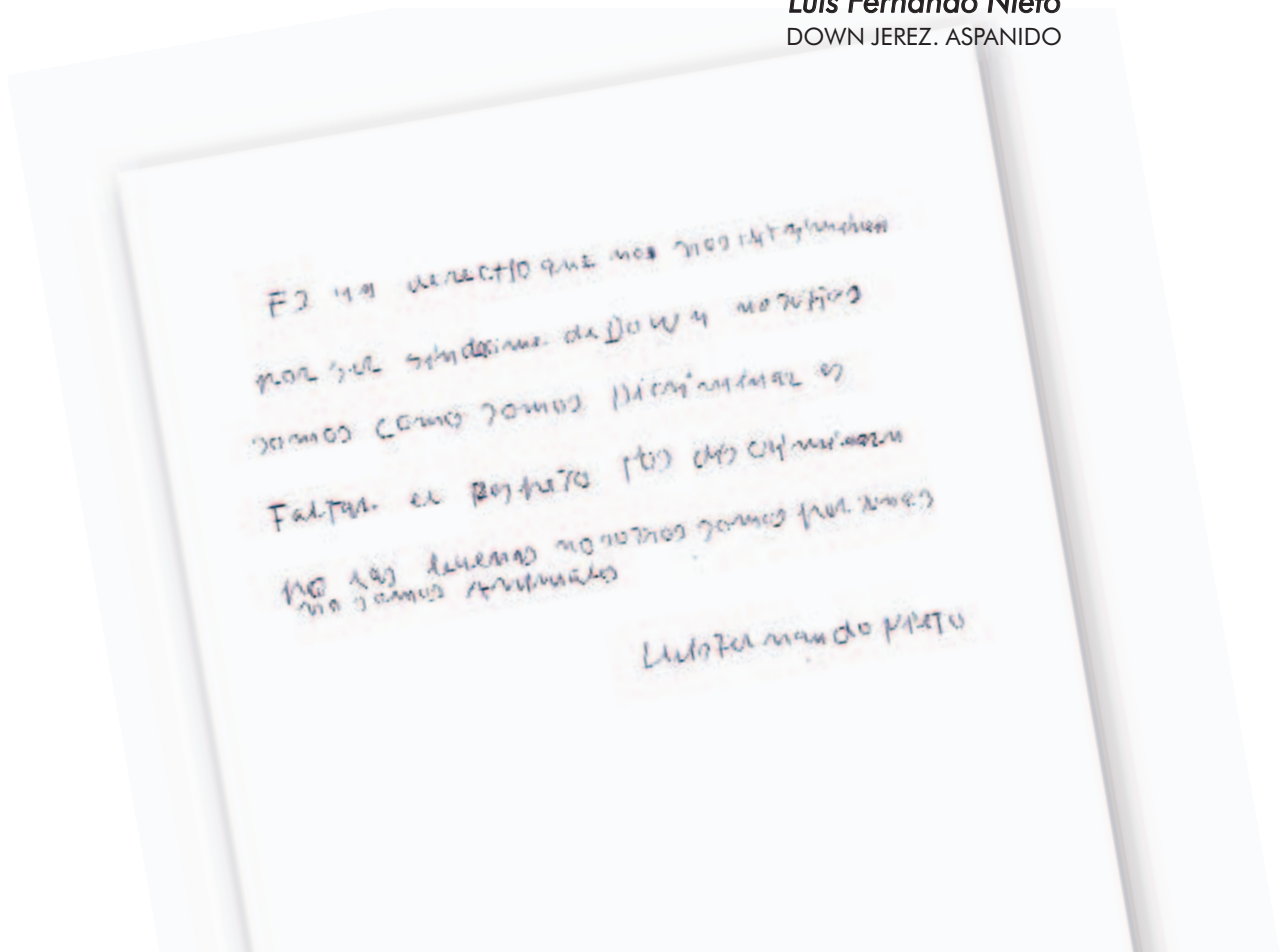 Luis Fernando Nieto
DOWN JEREZ. ASPANIDO
Es un derecho que nos nos
por ser síndrome de Down nosotros
somos como somos Discriminar es
Faltar el Respeto los
no las nosotros somos personas
no somos Animales
Luis Fernando Nieto